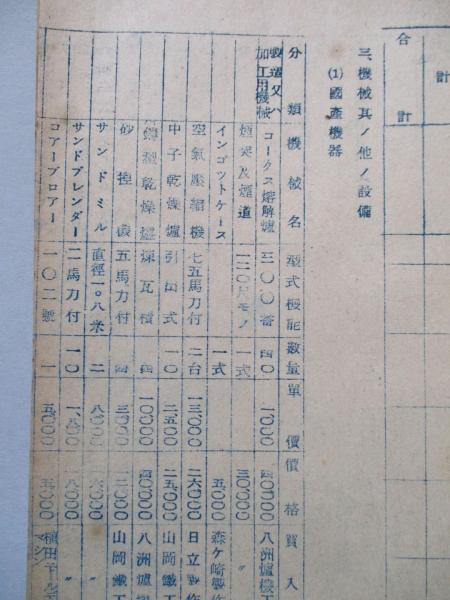 合計
計
三、機械其ノ他ノ設備
(1)國產機器
分類 機械名 型式機能 數量 單價 價格 買入
製造又ハ加工用機械 コークス熔解爐 三〇〇番 四〇 一、〇〇〇 四〇、〇〇〇 八洲爐機工
煙突及煙道 一二〇尺モノ 一式 三〇、〇〇〇 〃
インゴツトケース 一式 五、〇〇〇 森ケ崎製作
空氣壓縮機 七五馬力付 二台 一三、〇〇〇 二六、〇〇〇 日立製作
中子乾燥爐 引出式 一〇 二、五〇〇 二五、〇〇〇 山岡鐵工
鑄型乾燥爐 煉瓦積 四 一〇、〇〇〇 四〇、〇〇〇 八洲爐機
砂 機 五馬力付 四 三、〇〇〇 一二、〇〇〇 山岡鐵工
サンドミル 直徑一・八米 二 八、〇〇〇 一六、〇〇〇 〃
サンドブレンダー 二馬力付 一〇 一、八〇〇 一八、〇〇〇 〃
コアーブロアー 一〇二號 一 五、〇〇〇 五、〇〇〇 マシン